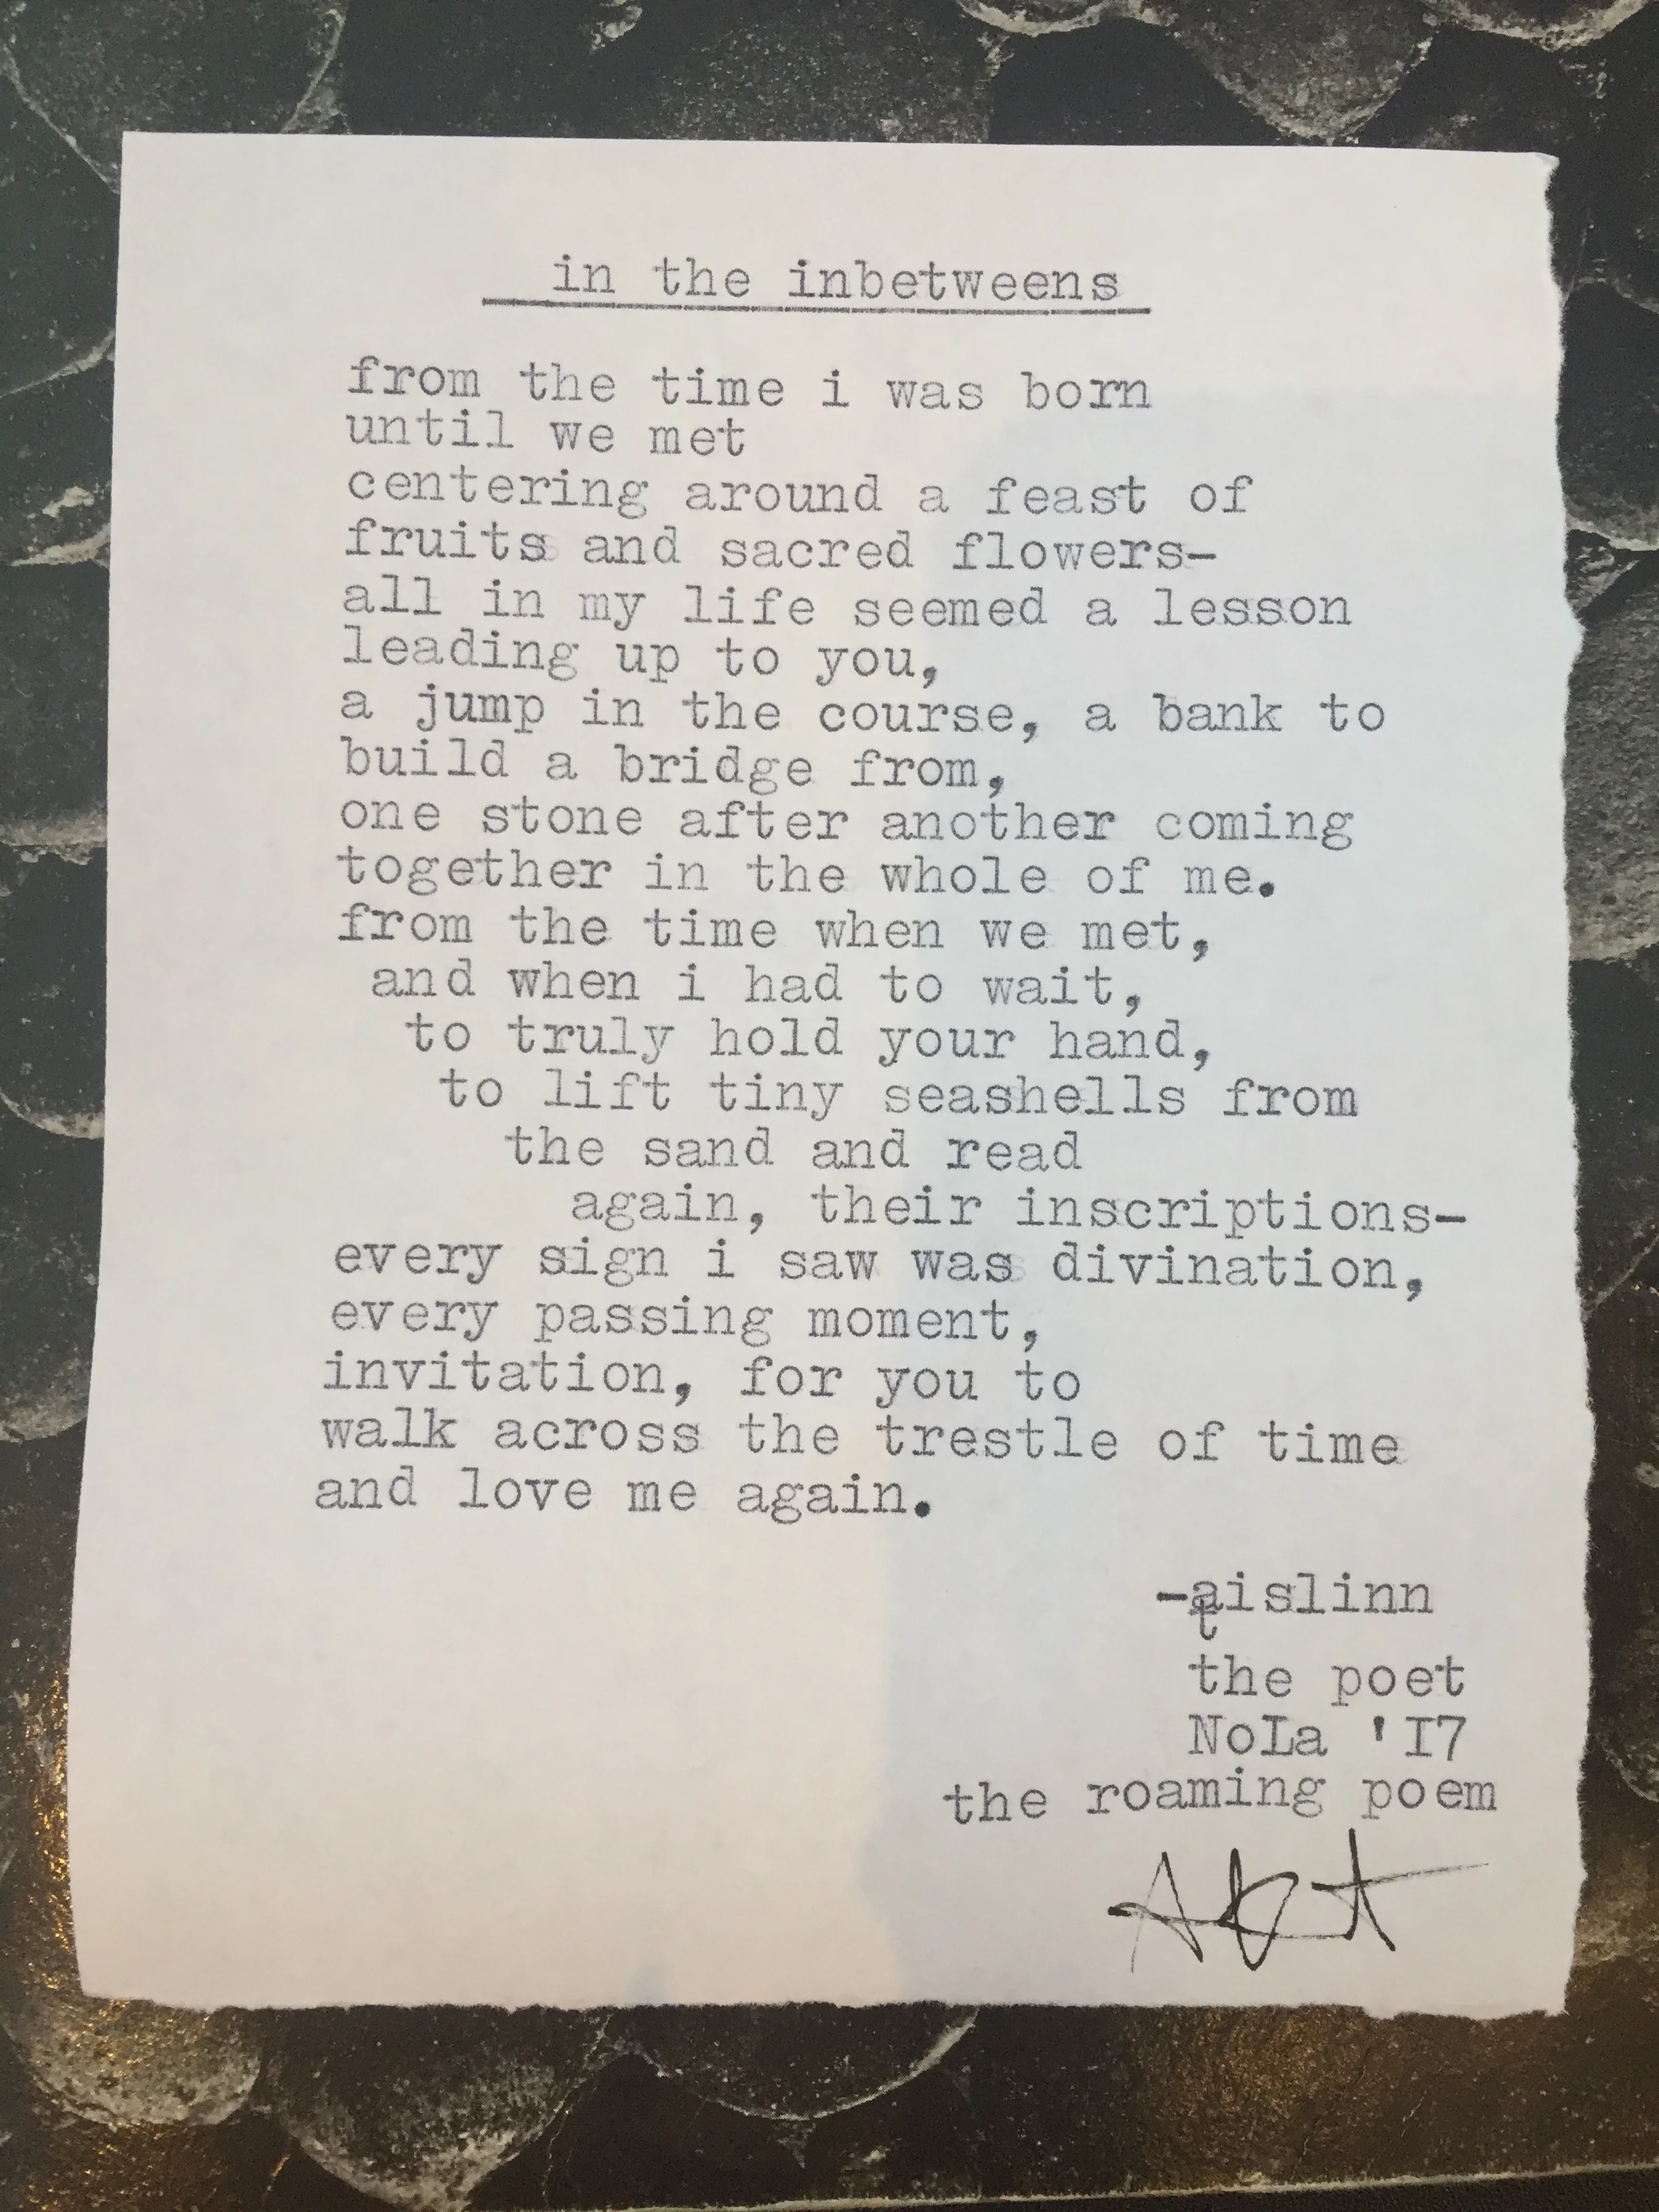 in the inbetweens
from the time i was born
until we met
centering around a feast of
fruits and sacred flowers-
all in my life seemed a lesson
leading up to you,
a jump in the course, a bank to
build a bridge from,
one stone after another coming
together in the whole of me.
from the time when we met,
and when i had to wait,
to truly hold your hand,
to lift tiny seashells from
the sand and read
again, their inscriptions-
every sign i saw was divination,
every passing moment,
invitation, for you to
walk across the trestle of time
and love me again.
-aislinn
t
the poet
NoLa 'I7
the roaming poem